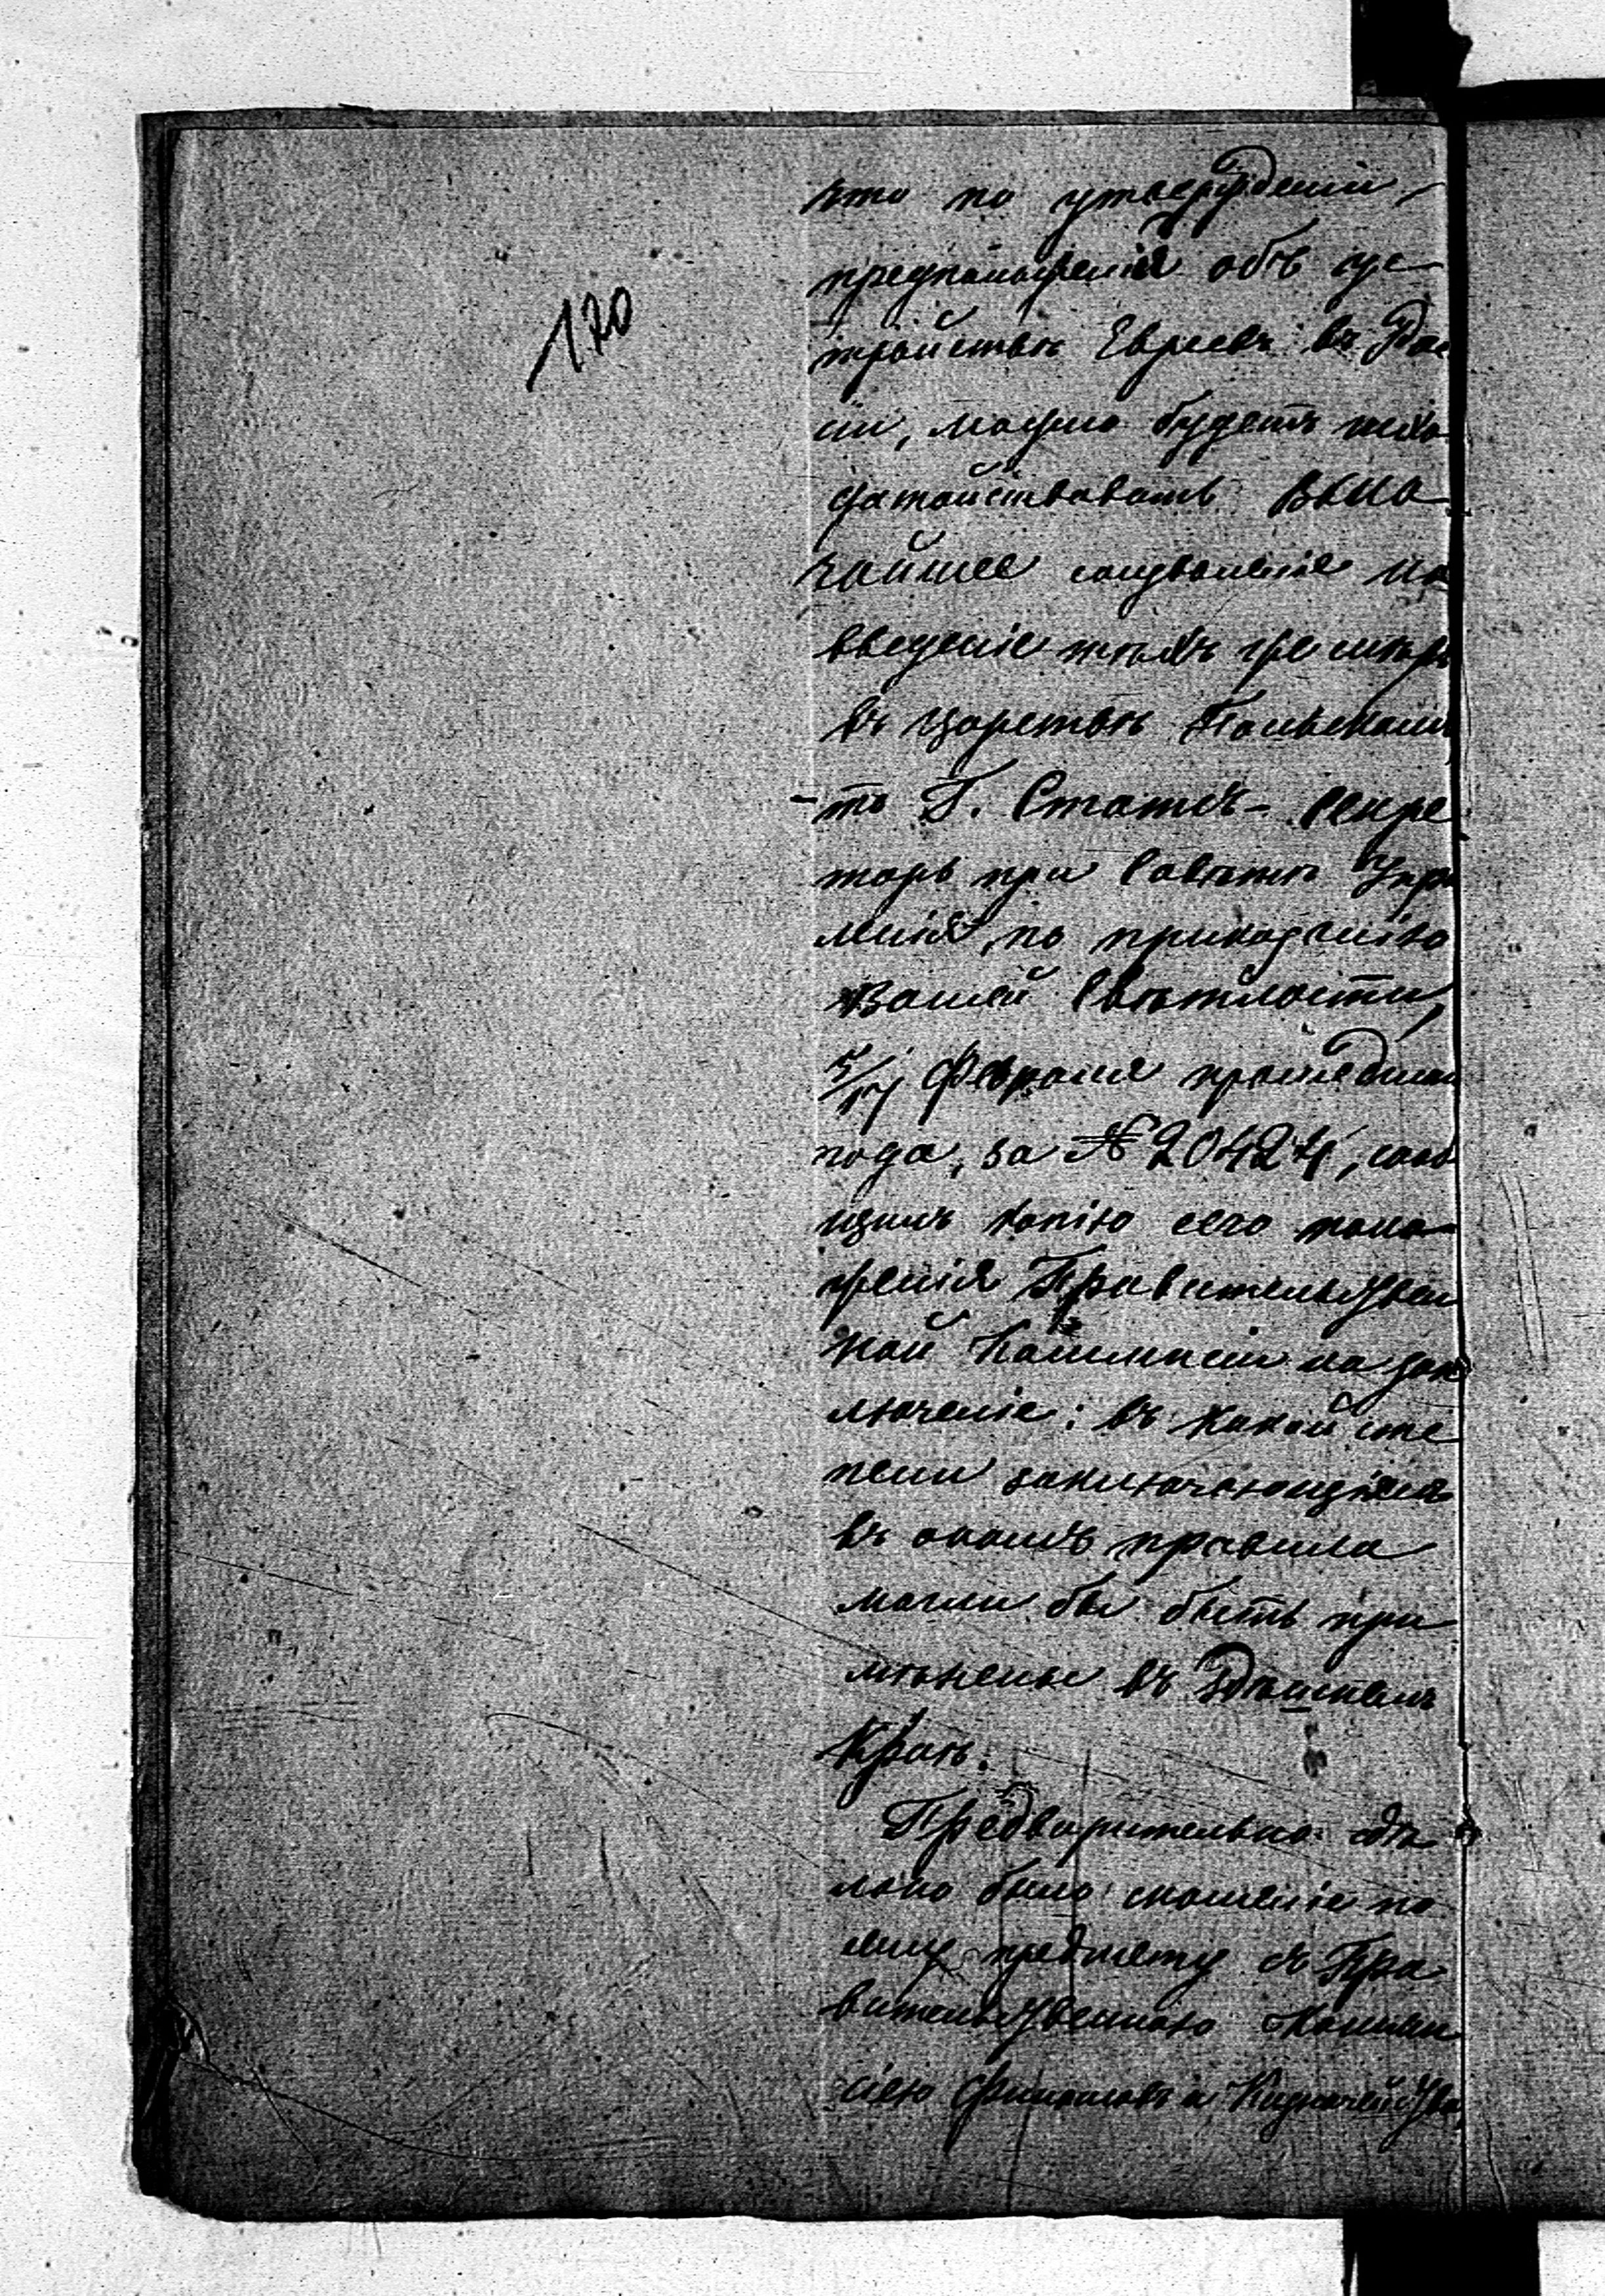 120
что по утвержденіи
предположенія объ ус-
тройствѣ Евреевъ въ Рос
сіи, можно будетъ исхо
датайствовать Высо
чайшее соизволеніе на
введеніе тѣхъ же мѣръ
въ Царствѣ Польскомъ
то Г. Статсъ-Секре
тарь при Совѣтѣ Упра
ленія, по приказанію
Вашей Свѣтлости,
5/17 Февраля прошедшаго
года, за № 20424, сооб
щилъ копію сего поло-
женія Правительствен
ной Коммисіи на зак
люченіе: въ какой сте
пени заключающіяся
въ ономъ правила
могли бы быть при
мѣнены въ здѣшнемъ
Краѣ.
Предварительно сдѣ
лано было сношеніе по
сему предмету съ Пра
вительственною Коммис
сіею Финансовъ и Казначейства,